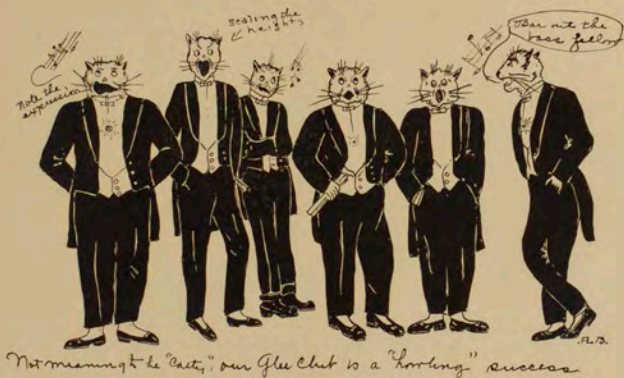 Note the
expression
Scaling the
heights
Bar out the
bass fellow
A.B.
Not meaning to be "Catty", our Glee Club is a "howling" success